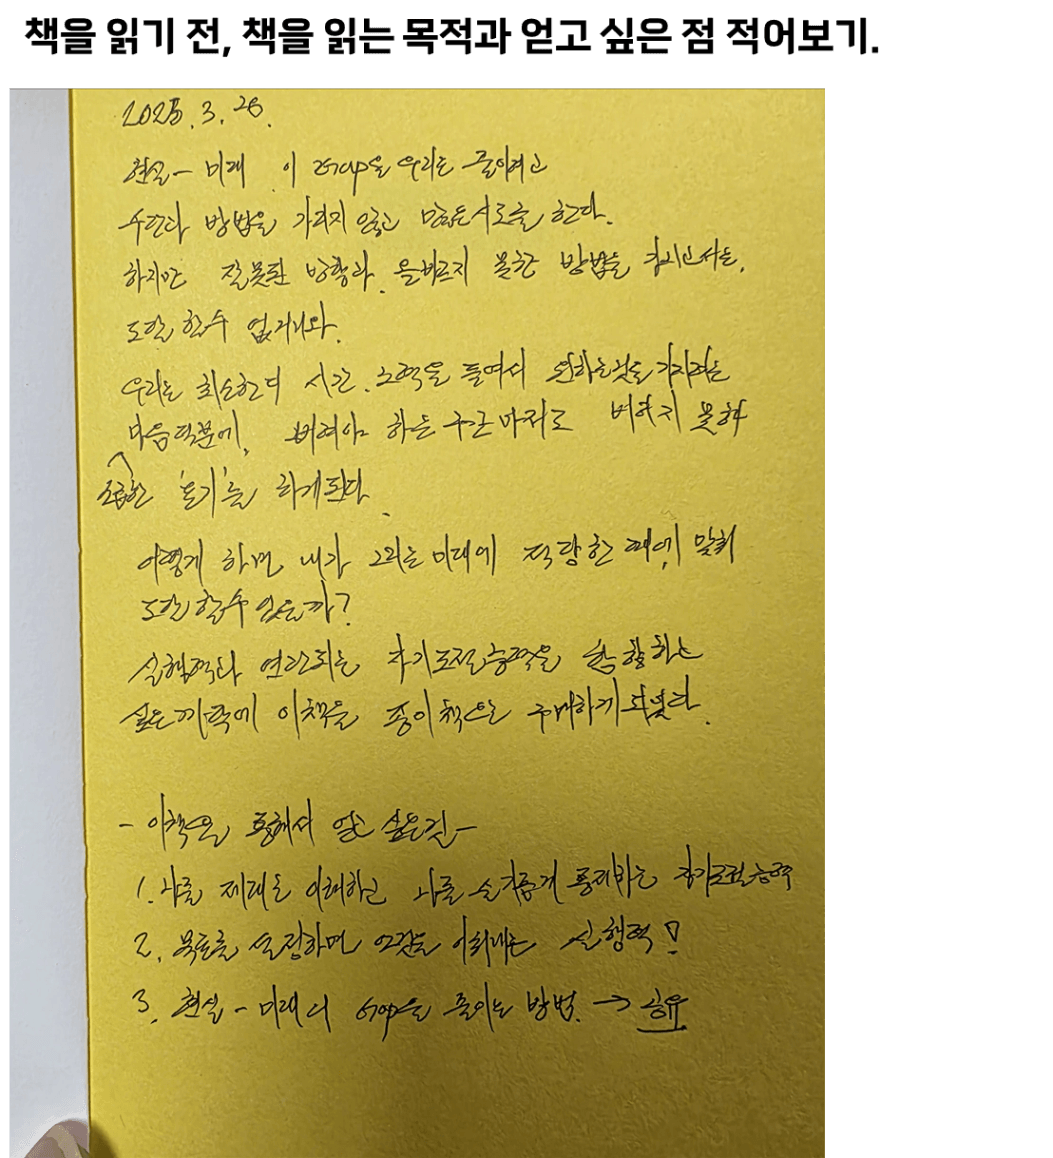 책을 읽기 전, 책을 읽는 목적과 얻고 싶은 점 적어보기.
2025. 3. 28.
현실 - 미래 이 Gap을 우리는 줄이려고
수단과 방법을 가리지 않고 시도를 한다.
하지만 잘못된 방향과 올바르지 못한 방법을 가지고서는,
도달 할수 없거니와.
우리는 최소한의 시간. 노력을 들여서 원하는것을 가지려는
마음 덕분에, 버려야 하는 습관 마저도 버리지 못한
조급한 '포기'를 하게된다.
어떻게 하면 내가 그리는 미래에 적당한 때에 맞춰
도달 할수 있을까?
실행력과 연관되는 자기조절능력을 함양하는
싶은 까닭에 이책을 종이책으로 구매하게 되었다.
- 이책을 통해서 얻고 싶은점 -
1. 나를 제대로 이해하고 나를 슬기롭게 통제하는 자기조절능력
2. 목표를 설정하며 그것을 이뤄내는 실행력!
3. 현실 - 미래의 Gap을 줄이는 방법. → 공유